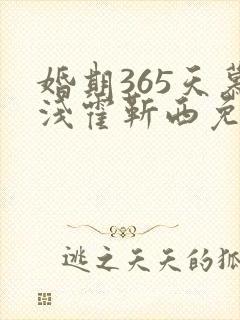 婚期365天慕
浅霍靳西免
逃之天天的狐